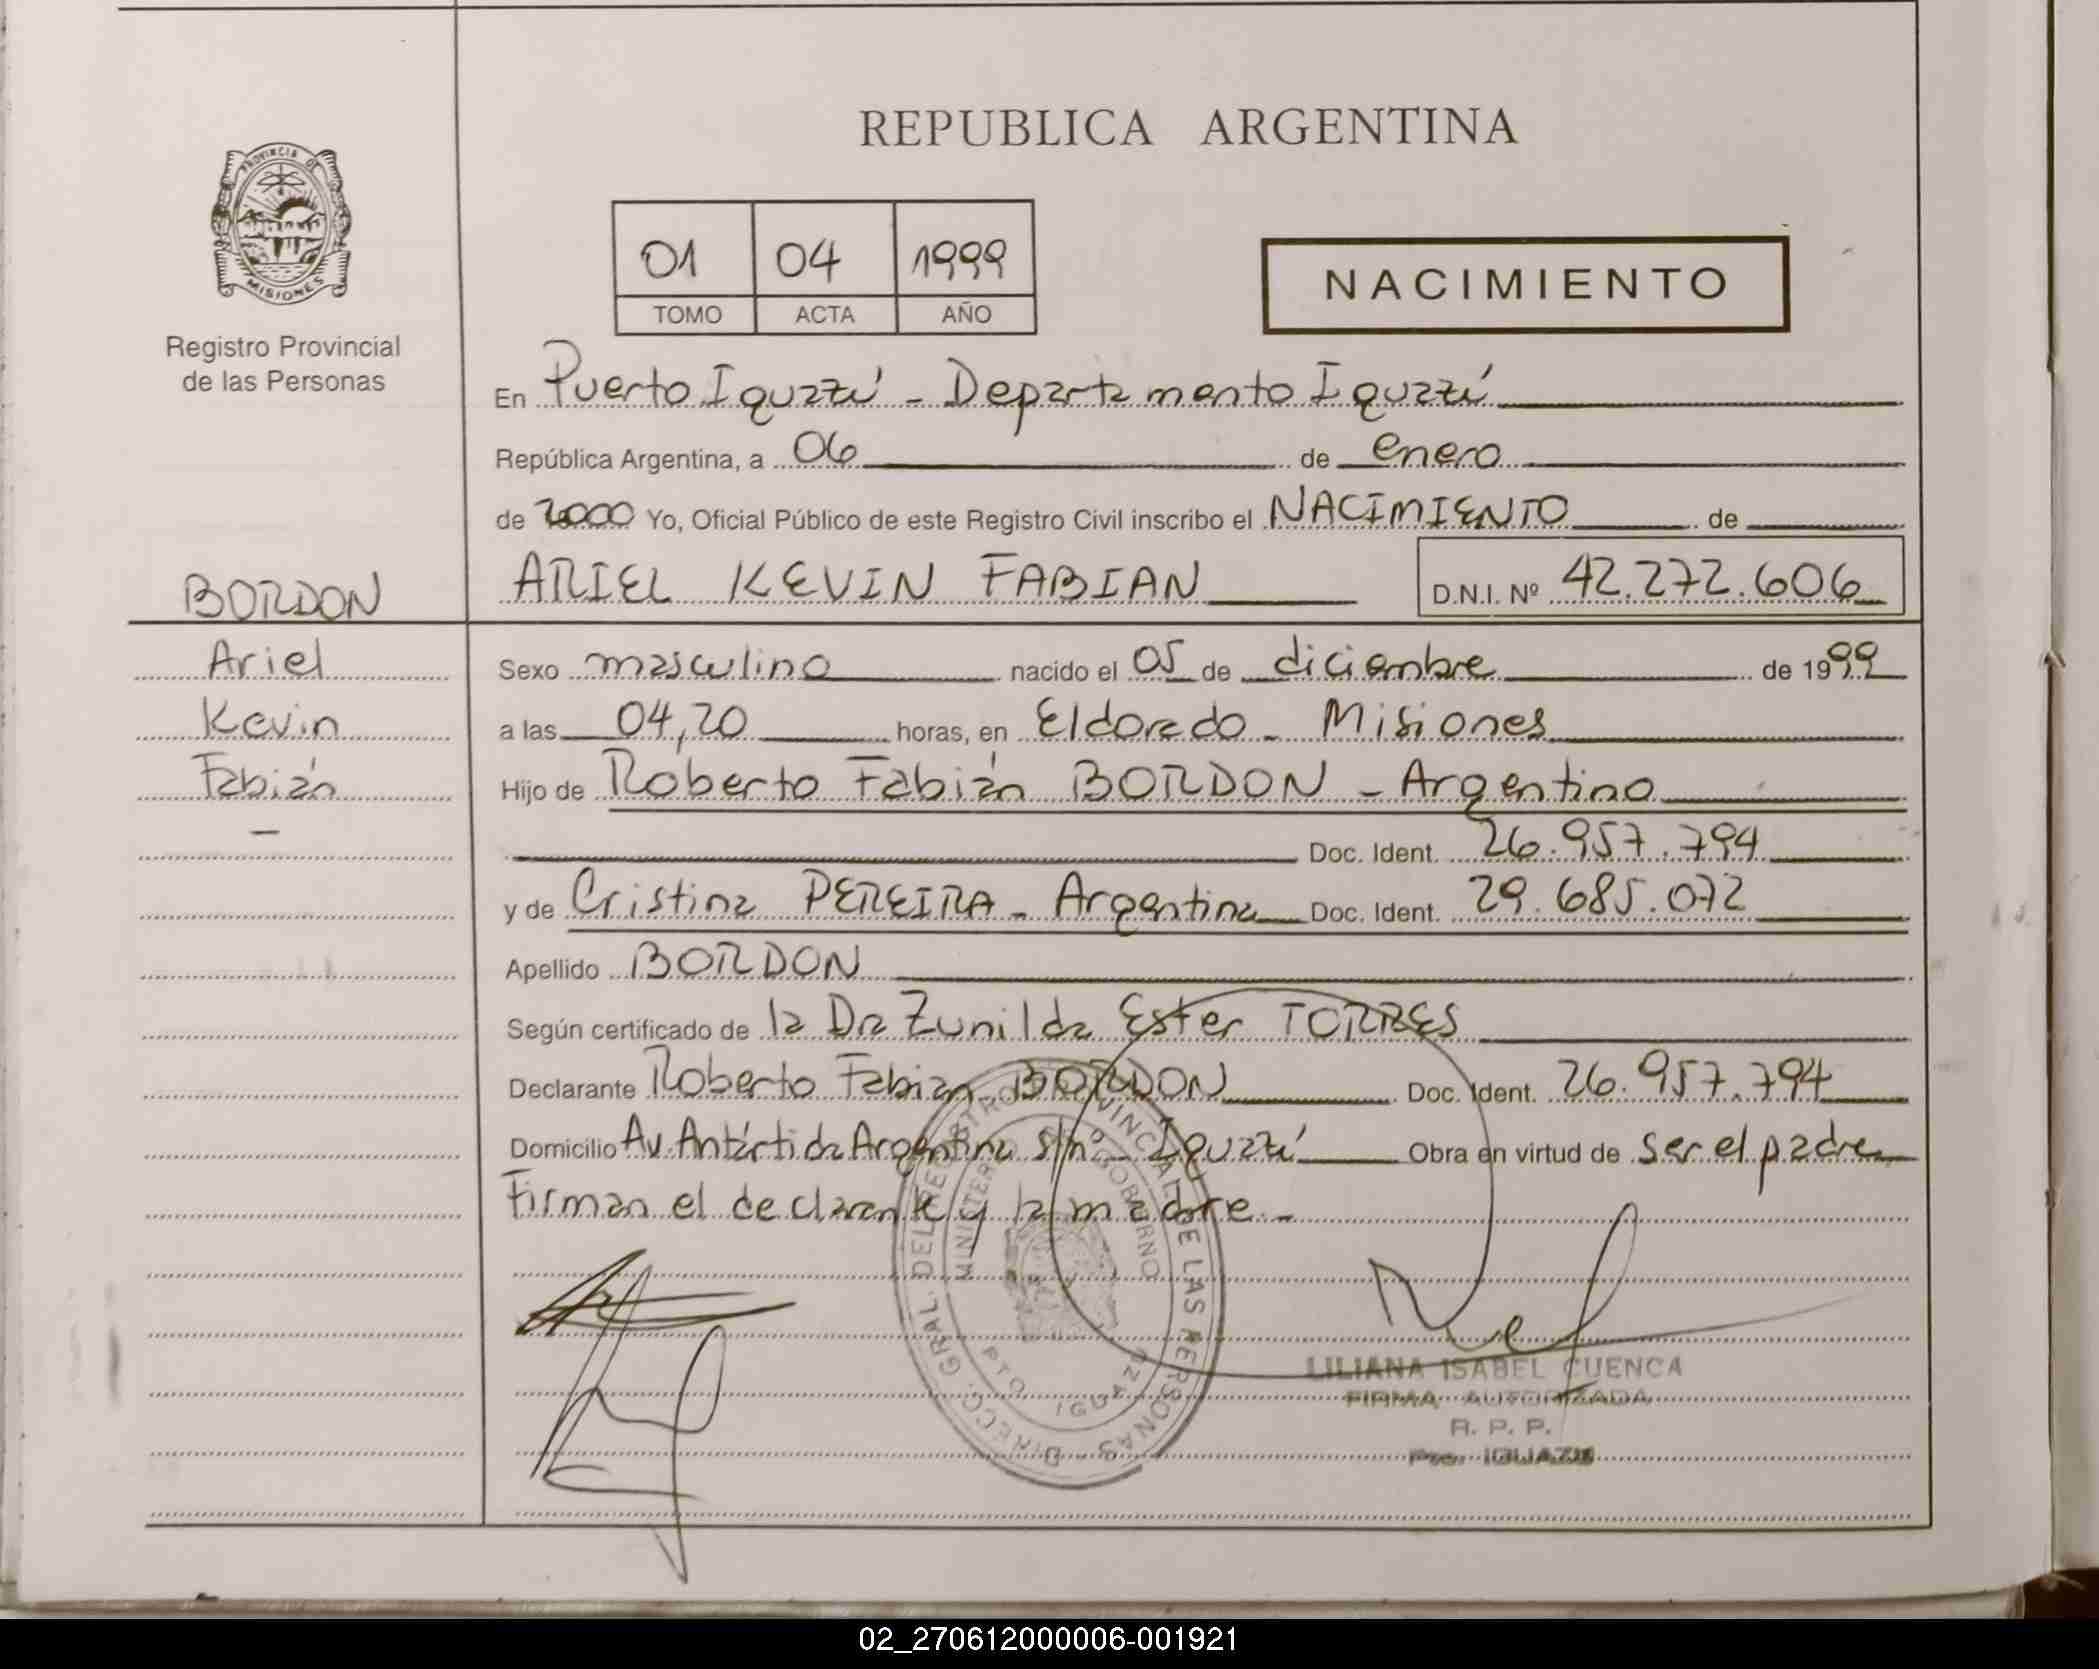 REPUBLICA ARGENTINA
PROVINCIA DE
MISIONES
Registro Provincial
de las Personas
01 04 1999
TOMO ACTA AÑO
NACIMIENTO
En Puerto Iguazú - Departamento Iguazú
República Argentina, a 06 de enero
de 2000 Yo, Oficial Público de este Registro Civil inscribo el NACIMIENTO de
BORDON
ARIEL KEVIN FABIAN D.N.I. Nº 42.272.606
Ariel
Kevin
Fabián
—
Sexo masculino nacido el 05 de diciembre de 1999
a las 04,20 horas, en Eldorado - Misiones
Hijo de Roberto Fabián BORDON - Argentino
Doc. Ident. 26.957.794
y de Cristina PEREIRA - Argentina Doc. Ident. 29.685.072
Apellido BORDON
Según certificado de la Dra Zunilda Ester TORRES
Declarante Roberto Fabian BORDON Doc. Ident. 26.957.794
Domicilio Av. Antártida Argentina s/nº - Iguazú Obra en virtud de ser el padre
Firman el declarante y la madre -
DIRECC. GRAL. DEL REGISTRO PROVINCIAL DE LAS PERSONAS
MINISTERIO GOBIERNO
PTO IGUAZU
LILIANA ISABEL CUENCA
FIRMA AUTORIZADA
R. P. P.
Pto. IGUAZU
02_270612000006-001921